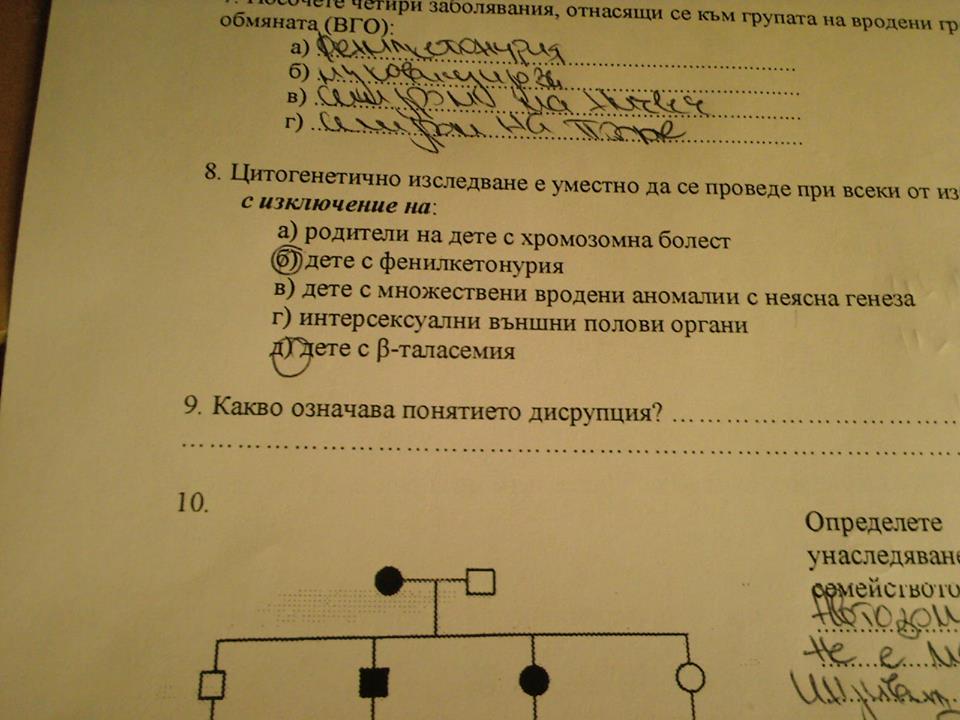 7. Посочете четири заболявания, отнасящи се към групата на вродени гр
обмяната (ВГО):
а) фенилкетонурия
б)
в) синдром на
г) синдром на
8. Цитогенетично изследване е уместно да се проведе при всеки от из
с изключение на:
а) родители на дете с хромозомна болест
б) дете с фенилкетонурия
в) дете с множествени вродени аномалии с неясна генеза
г) интерсексуални външни полови органи
д) дете с β-таласемия
9. Какво означава понятието дисрупция? ……………………
……………………………………………………………………
10.
Определете
унаследяване
семейството
Автозом
Не е